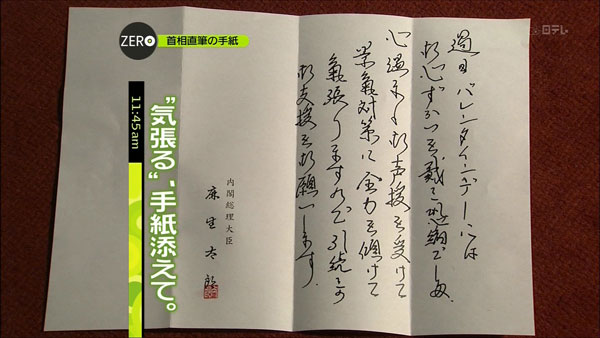 ZERO
首相直筆の手紙
日テレ
11:45am
“気張る”、手紙添えて。
過日バレンタインデーには
御心ずかいを戴き恐縮でした。
心温まる御声援を受けて
景氣対策に全力を傾けて
氣張りますので引続きの
御支援を御願いします。
内閣総理大臣
麻生太郎